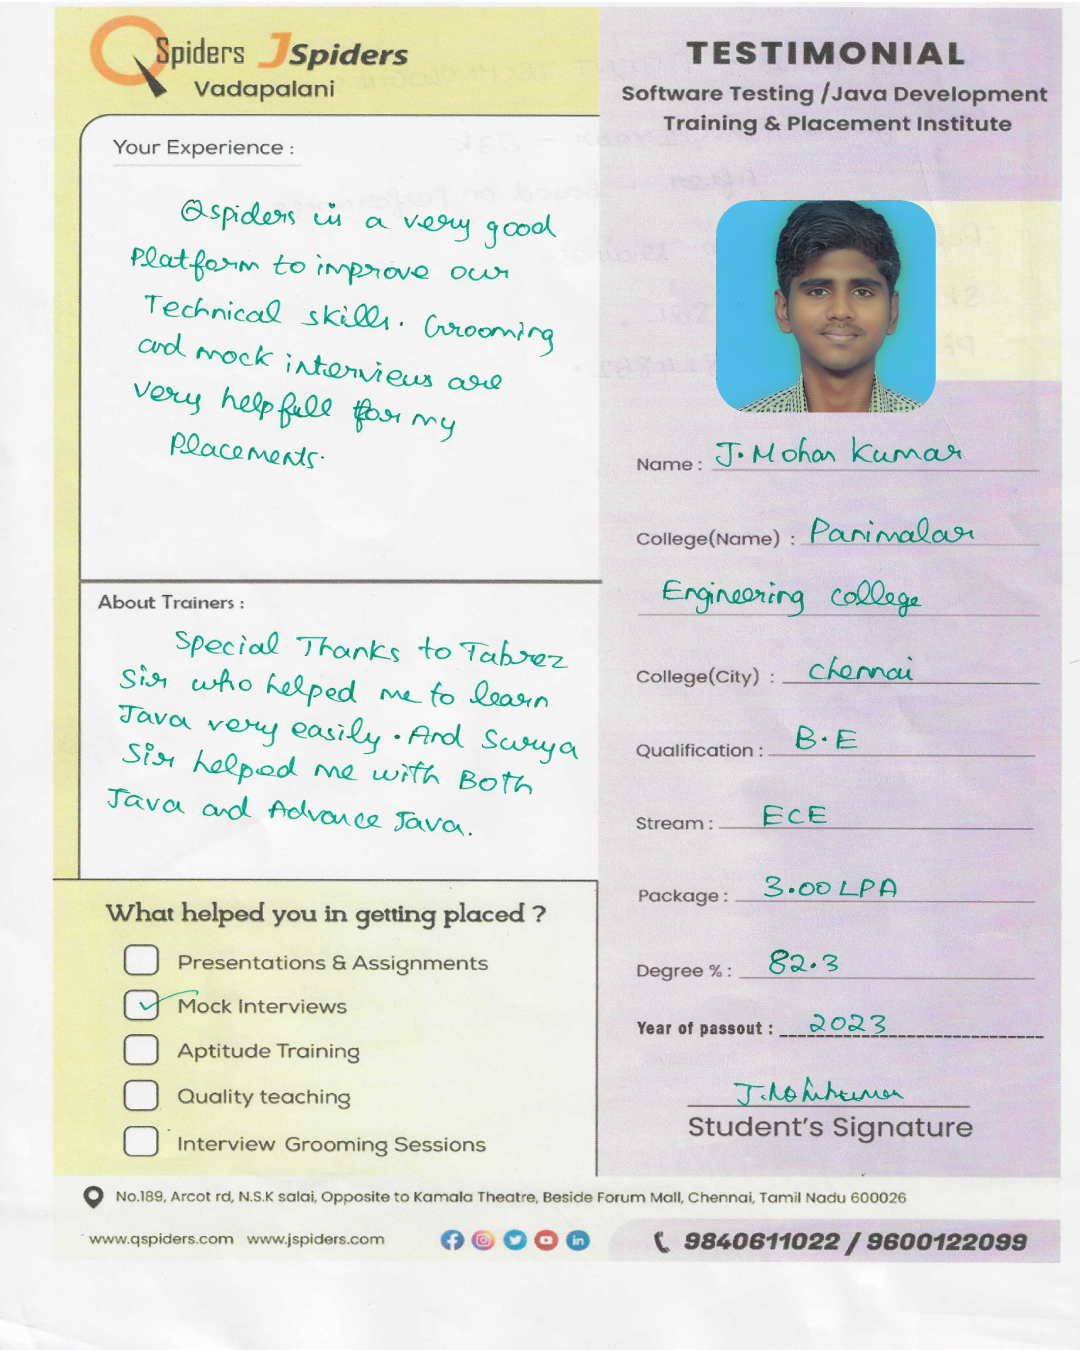 QSpiders JSpiders
Vadapalani
TESTIMONIAL
Software Testing /Java Development
Training & Placement Institute
Your Experience :
Qspiders is a very good
Platform to improve our
Technical skills. Grooming
and mock interviews are
very helpfull for my
Placements.
About Trainers :
Special Thanks to Tabrez
Sir who helped me to learn
Java very easily. And Surya
Sir helped me with Both
Java and Advance Java.
What helped you in getting placed ?
Presentations & Assignments
Mock Interviews
Aptitude Training
Quality teaching
Interview Grooming Sessions
Name : J. Mohan Kumar
College(Name) : Panimalar
Engineering college
College(City) : chennai
Qualification : B.E
Stream : ECE
Package : 3.00 LPA
Degree % : 82.3
Year of passout : 2023
Student's Signature
No.189, Arcot rd, N.S.K salai, Opposite to Kamala Theatre, Beside Forum Mall, Chennai, Tamil Nadu 600026
www.qspiders.com www.jspiders.com
9840611022 / 9600122099